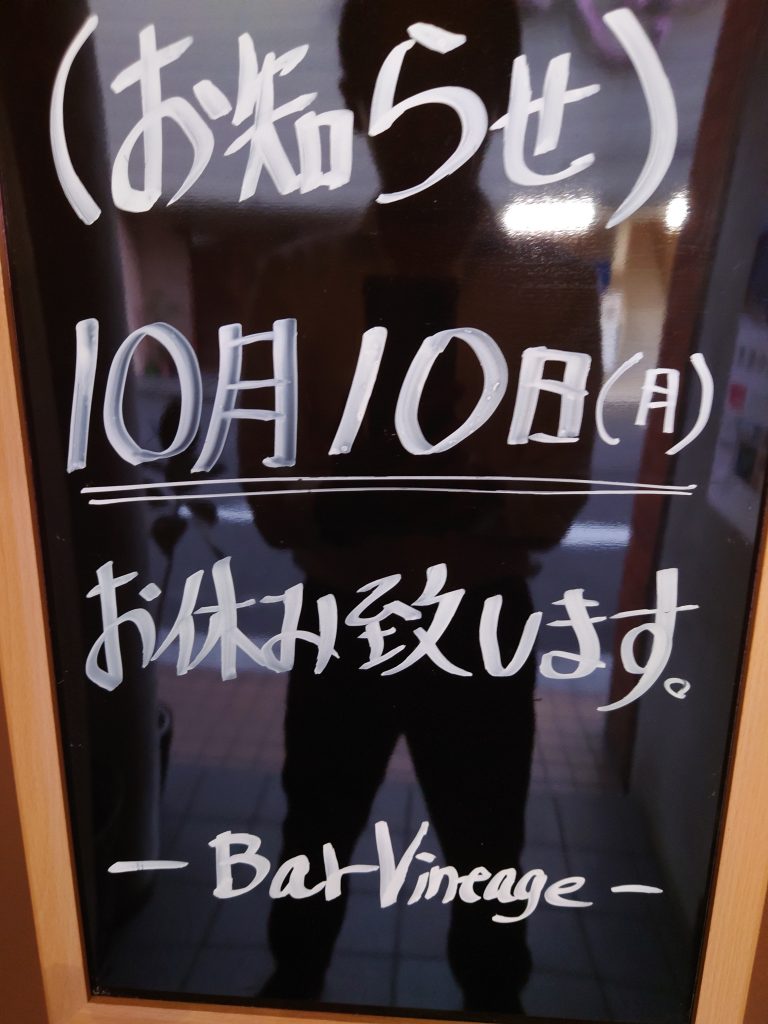 (お知らせ)
10月10日(月)
お休み致します。
- Bar Vineage -